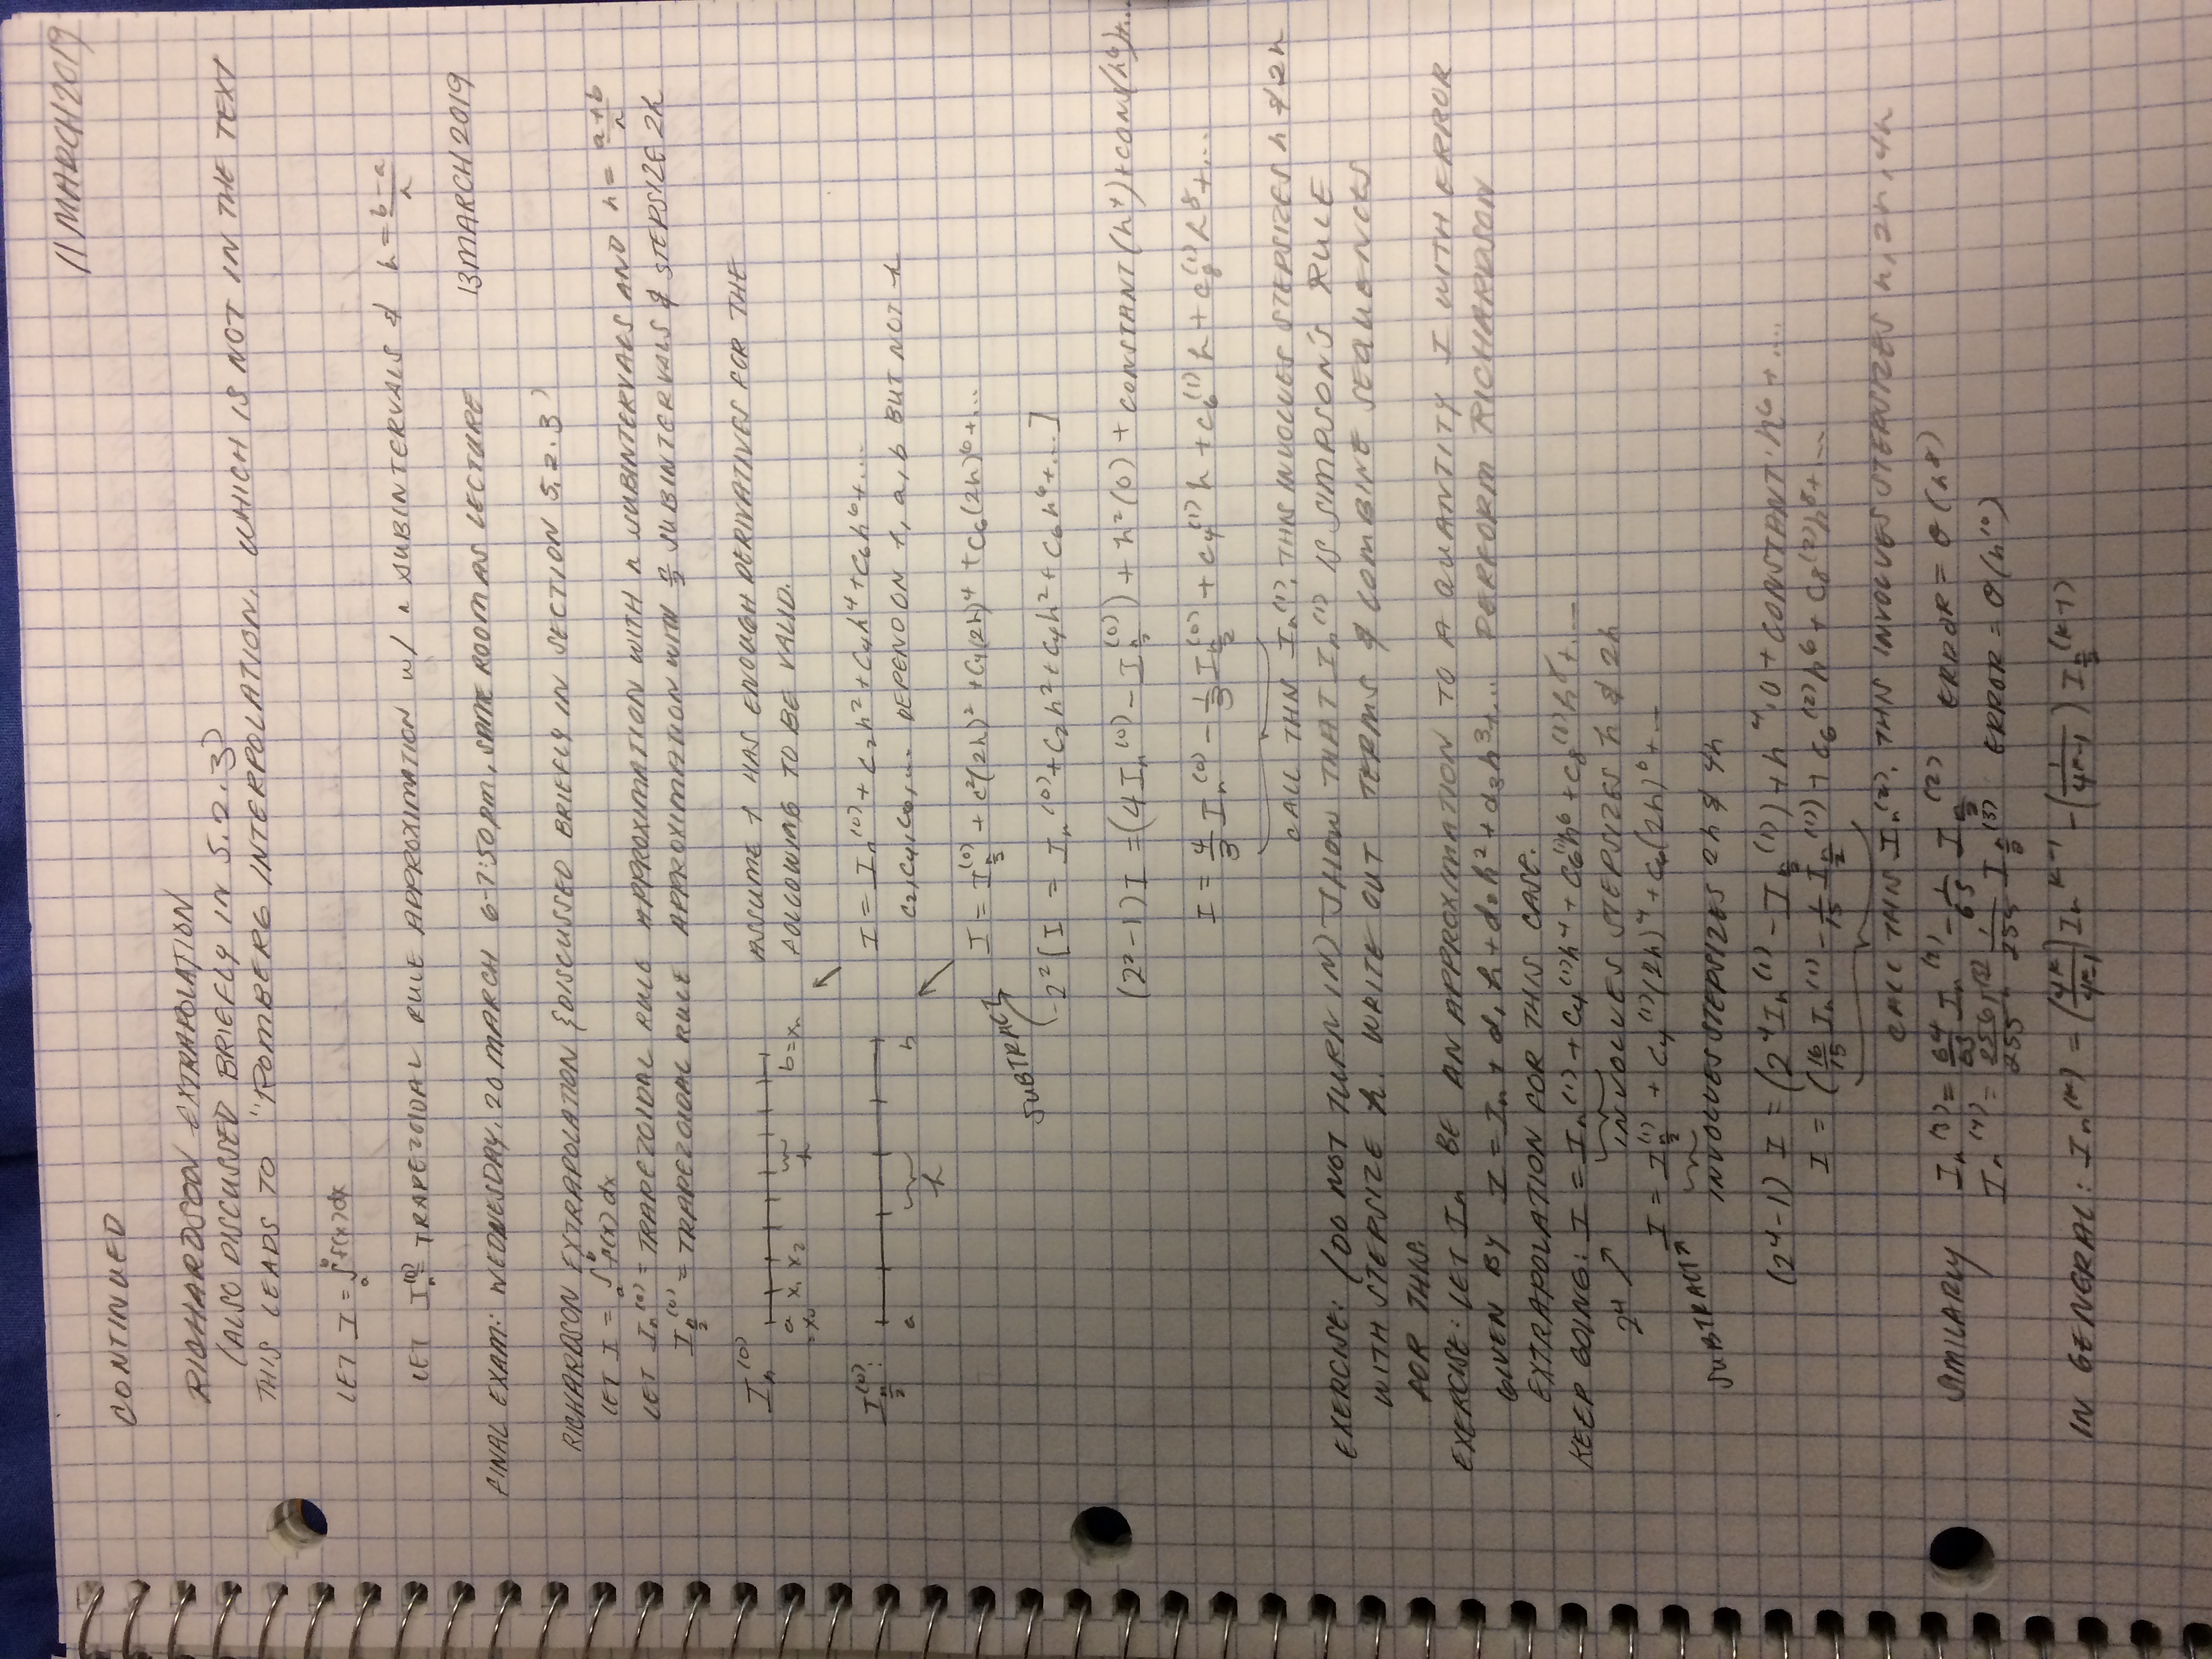 11 MARCH 2019
CONTINUED
RICHARDSON EXTRAPOLATION
(ALSO DISCUSSED BRIEFLY IN 5.2.3)
THIS LEADS TO "ROMBERG INTERPOLATION, WHICH IS NOT IN THE TEXT
LET I = ∫_a^b f(x)dx
LET I_n^(0) = TRAPEZOIDAL RULE APPROXIMATION w/ n SUBINTERVALS & h = (b-a)/n
13 MARCH 2019
FINAL EXAM: WEDNESDAY, 20 MARCH 6-7:50pm, SAME ROOM AS LECTURE
RICHARDSON EXTRAPOLATION {DISCUSSED BRIEFLY IN SECTION 5.2.3}
LET I = ∫_a^b f(x) dx
LET I_n^(0) = TRAPEZOIDAL RULE APPROXIMATION WITH n SUBINTERVALS AND h = (a+b)/n
I_{n/2}^(0) = TRAPEZOIDAL RULE APPROXIMATION WITH n/2 SUBINTERVALS & STEPSIZE 2h
I_n^(0)
a = x₀ x₁ x₂ h b = xₙ
ASSUME f HAS ENOUGH DERIVATIVES FOR THE
FOLLOWING TO BE VALID.
I_{n/2}^(0):
a h b
I = I_n^(0) + c₂h² + c₄h⁴ + c₆h⁶ + ...
c₂, c₄, c₆, ... DEPEND ON f, a, b BUT NOT h
I = I_{n/2}^(0) + c²(2h)² + c₄(2h)⁴ + c₆(2h)⁶ + ...
SUBTRACT
-2²[I = I_n^(0) + c₂h² + c₄h² + c₆h⁶ + ...]
(2²-1)I = (4I_n^(0) - I_{n/2}^(0)) + h²(0) + CONSTANT(h⁴) + CONS(h⁶) + ...
I = 4/3 I_n^(0) - 1/3 I_{n/2}^(0) + c₄^(1)h + c₆^(1)h + c₈^(1)h⁸ + ...
CALL THIS I_n^(1). THIS INVOLVES STEPSIZES h & 2h
EXERCISE: (DO NOT TURN IN) SHOW THAT I_n^(1) IS SIMPSON'S RULE
WITH STEPSIZE h. WRITE OUT TERMS & COMBINE SEQUENCES
FOR THIS.
EXERCISE: LET I_n BE AN APPROXIMATION TO A QUANTITY I WITH ERROR
GIVEN BY I = I_n + d₁h + d₂h² + d₃h³ + ... PERFORM RICHARDSON
EXTRAPOLATION FOR THIS CASE.
KEEP GOING: I = I_n^(1) + c₄^(1)h⁴ + c₆^(1)h⁶ + c₈^(1)h⁸ + ...
2⁴ INVOLVES STEPSIZES h & 2h
I = I_{n/2}^(1) + c₄^(1)(2h)⁴ + c₆(2h)⁶ + ...
SUBTRACT
INVOLVES STEPSIZES 2h & 4h
(2⁴-1) I = (2⁴I_n^(1) - I_{n/2}^(1)) + h⁴·0 + CONSTANT·h⁶ + ....
I = (16/15 I_n^(1) - 1/15 I_{n/2}^(1)) + c₆^(2)h⁶ + c₈^(2)h⁸ + ...
CALL THIS I_n^(2). THIS INVOLVES STEPSIZES h, 2h, 4h
SIMILARLY I_n^(3) = 64/63 I_n^(2) - 1/63 I_{n/2}^(2) ERROR = O(h⁸)
I_n^(4) = 256/255 I_n^(3) 1/255 I_{n/2}^(3) ERROR = O(h¹⁰)
IN GENERAL: I_n^(k) = (4^k/(4^k-1)) I_n^{k-1} - (1/(4^k-1)) I_{n/2}^(k-1)